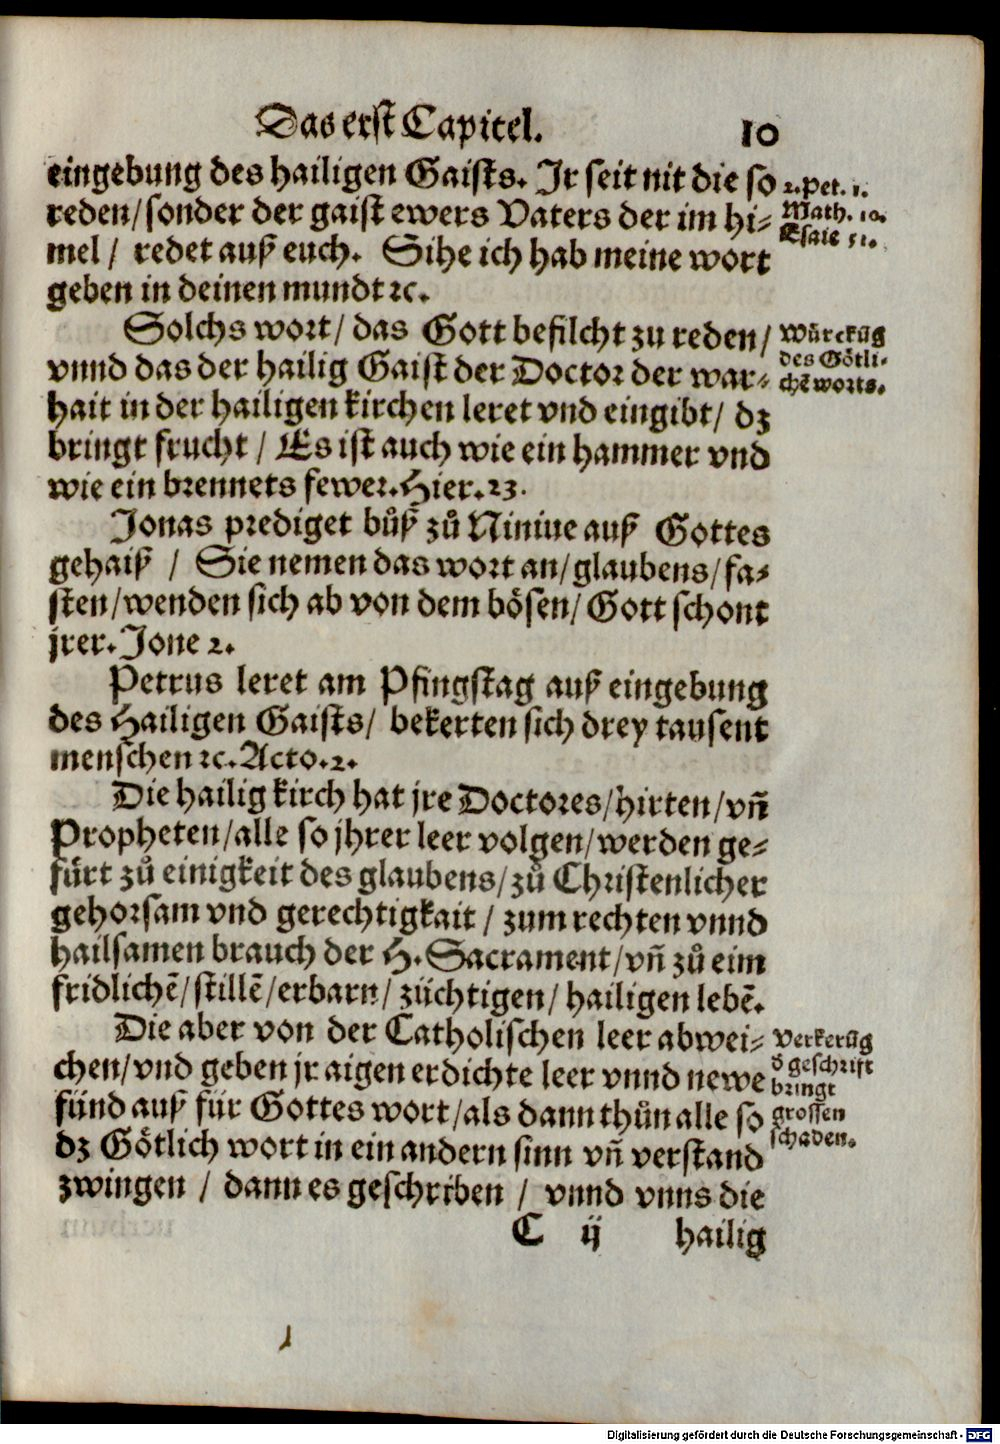 Das erst Capitel. 10
eingebung des hailigen Gaists. Ir seit nit die so
2. Pet. 1.
reden/sonder der gaist ewers Vaters der im hi-
Math. 10.
mel/ redet auß euch. Sihe ich hab meine wort
Esaie 51.
geben in deinen mundt ꝛc.
Solchs wort/ das Gott befilcht zu reden/
Würckūg
vnnd das der hailig Gaist der Doctor der war-
des Götli-
hait in der hailigen kirchen leret vnd eingibt/ dz
chē worts.
bringt frucht/ Es ist auch wie ein hammer vnd
wie ein brennets fewer. Hier. 23.
Jonas prediget bůß zů Niniue auß Gottes
gehaiß / Sie nemen das wort an/glaubens/fa-
sten/wenden sich ab von dem bösen/ Gott schont
jrer. Jone 2.
Petrus leret am Pfingstag auß eingebung
des Hailigen Gaists/ bekerten sich drey tausent
menschen ꝛc. Acto. 2.
Die hailig kirch hat jre Doctores/hirten/vñ
Propheten/alle so jhrer leer volgen/werden ge-
fürt zů einigkeit des glaubens/zů Christenlicher
gehorsam vnd gerechtigkait/ zum rechten vnnd
hailsamen brauch der H. Sacrament/vñ zů eim
fridlichē/stillē/erbarn/ züchtigen/ hailigen lebē.
Die aber von der Catholischen leer abwei-
Verkerūg
chen/vnd geben jr aigen erdichte leer vnnd newe
d geschrift
fünd auß für Gottes wort/als dann thůn alle so
bringt
grossen
dz Götlich wort in ein andern sinn vñ verstand
schaden.
zwingen / dann es geschriben / vnnd vnns die
C ij hailig
Digitalisierung gefördert durch die Deutsche Forschungsgemeinschaft - DFG